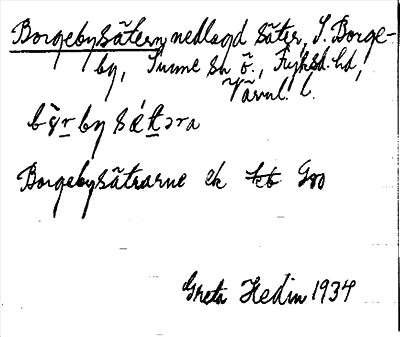 Borgebysätern, nedlagd säter, S. Borge-
by, Sunne sn ö., Fryksd. hd,
Värml. l.
by sätəra
Borgebysätrarne ek
Greta Hedin 1934